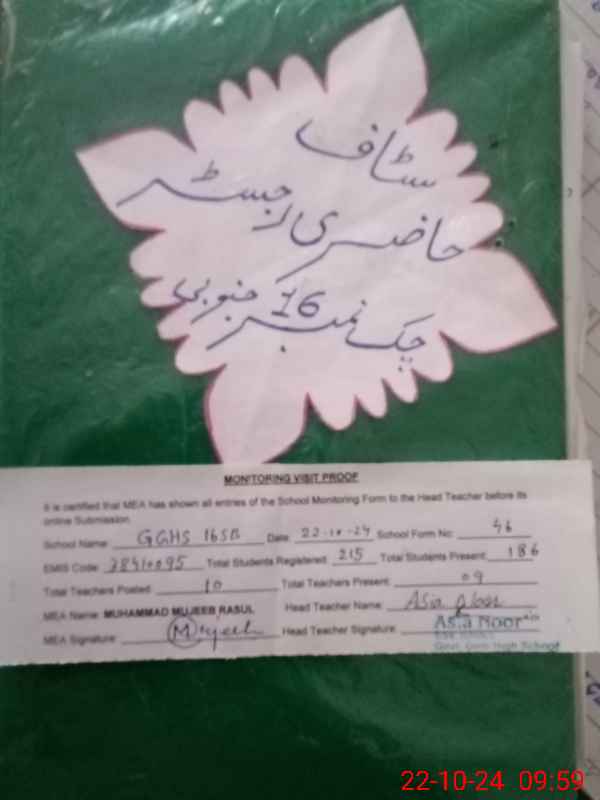 سٹاف
حاضری رجسٹر
چک نمبر 16 جنوبی
MONITORING VISIT PROOF
It is certified that MEA has shown all entries of the School Monitoring Form to the Head Teacher before its
online Submission
School Name: GGHS 16SB Date: 22-10-24 School Form No: 46
EMIS Code: 38410095 Total Students Registered: 215 Total Students Present: 186
Total Teachers Posted: 10 Total Teachers Present: 09
MEA Name: MUHAMMAD MUJEEB RASUL Head Teacher Name: Asia Noor
MEA Signature: Mujeeb Head Teacher Signature: Asia Noor
Govt. Girls High School
22-10-24 09:59